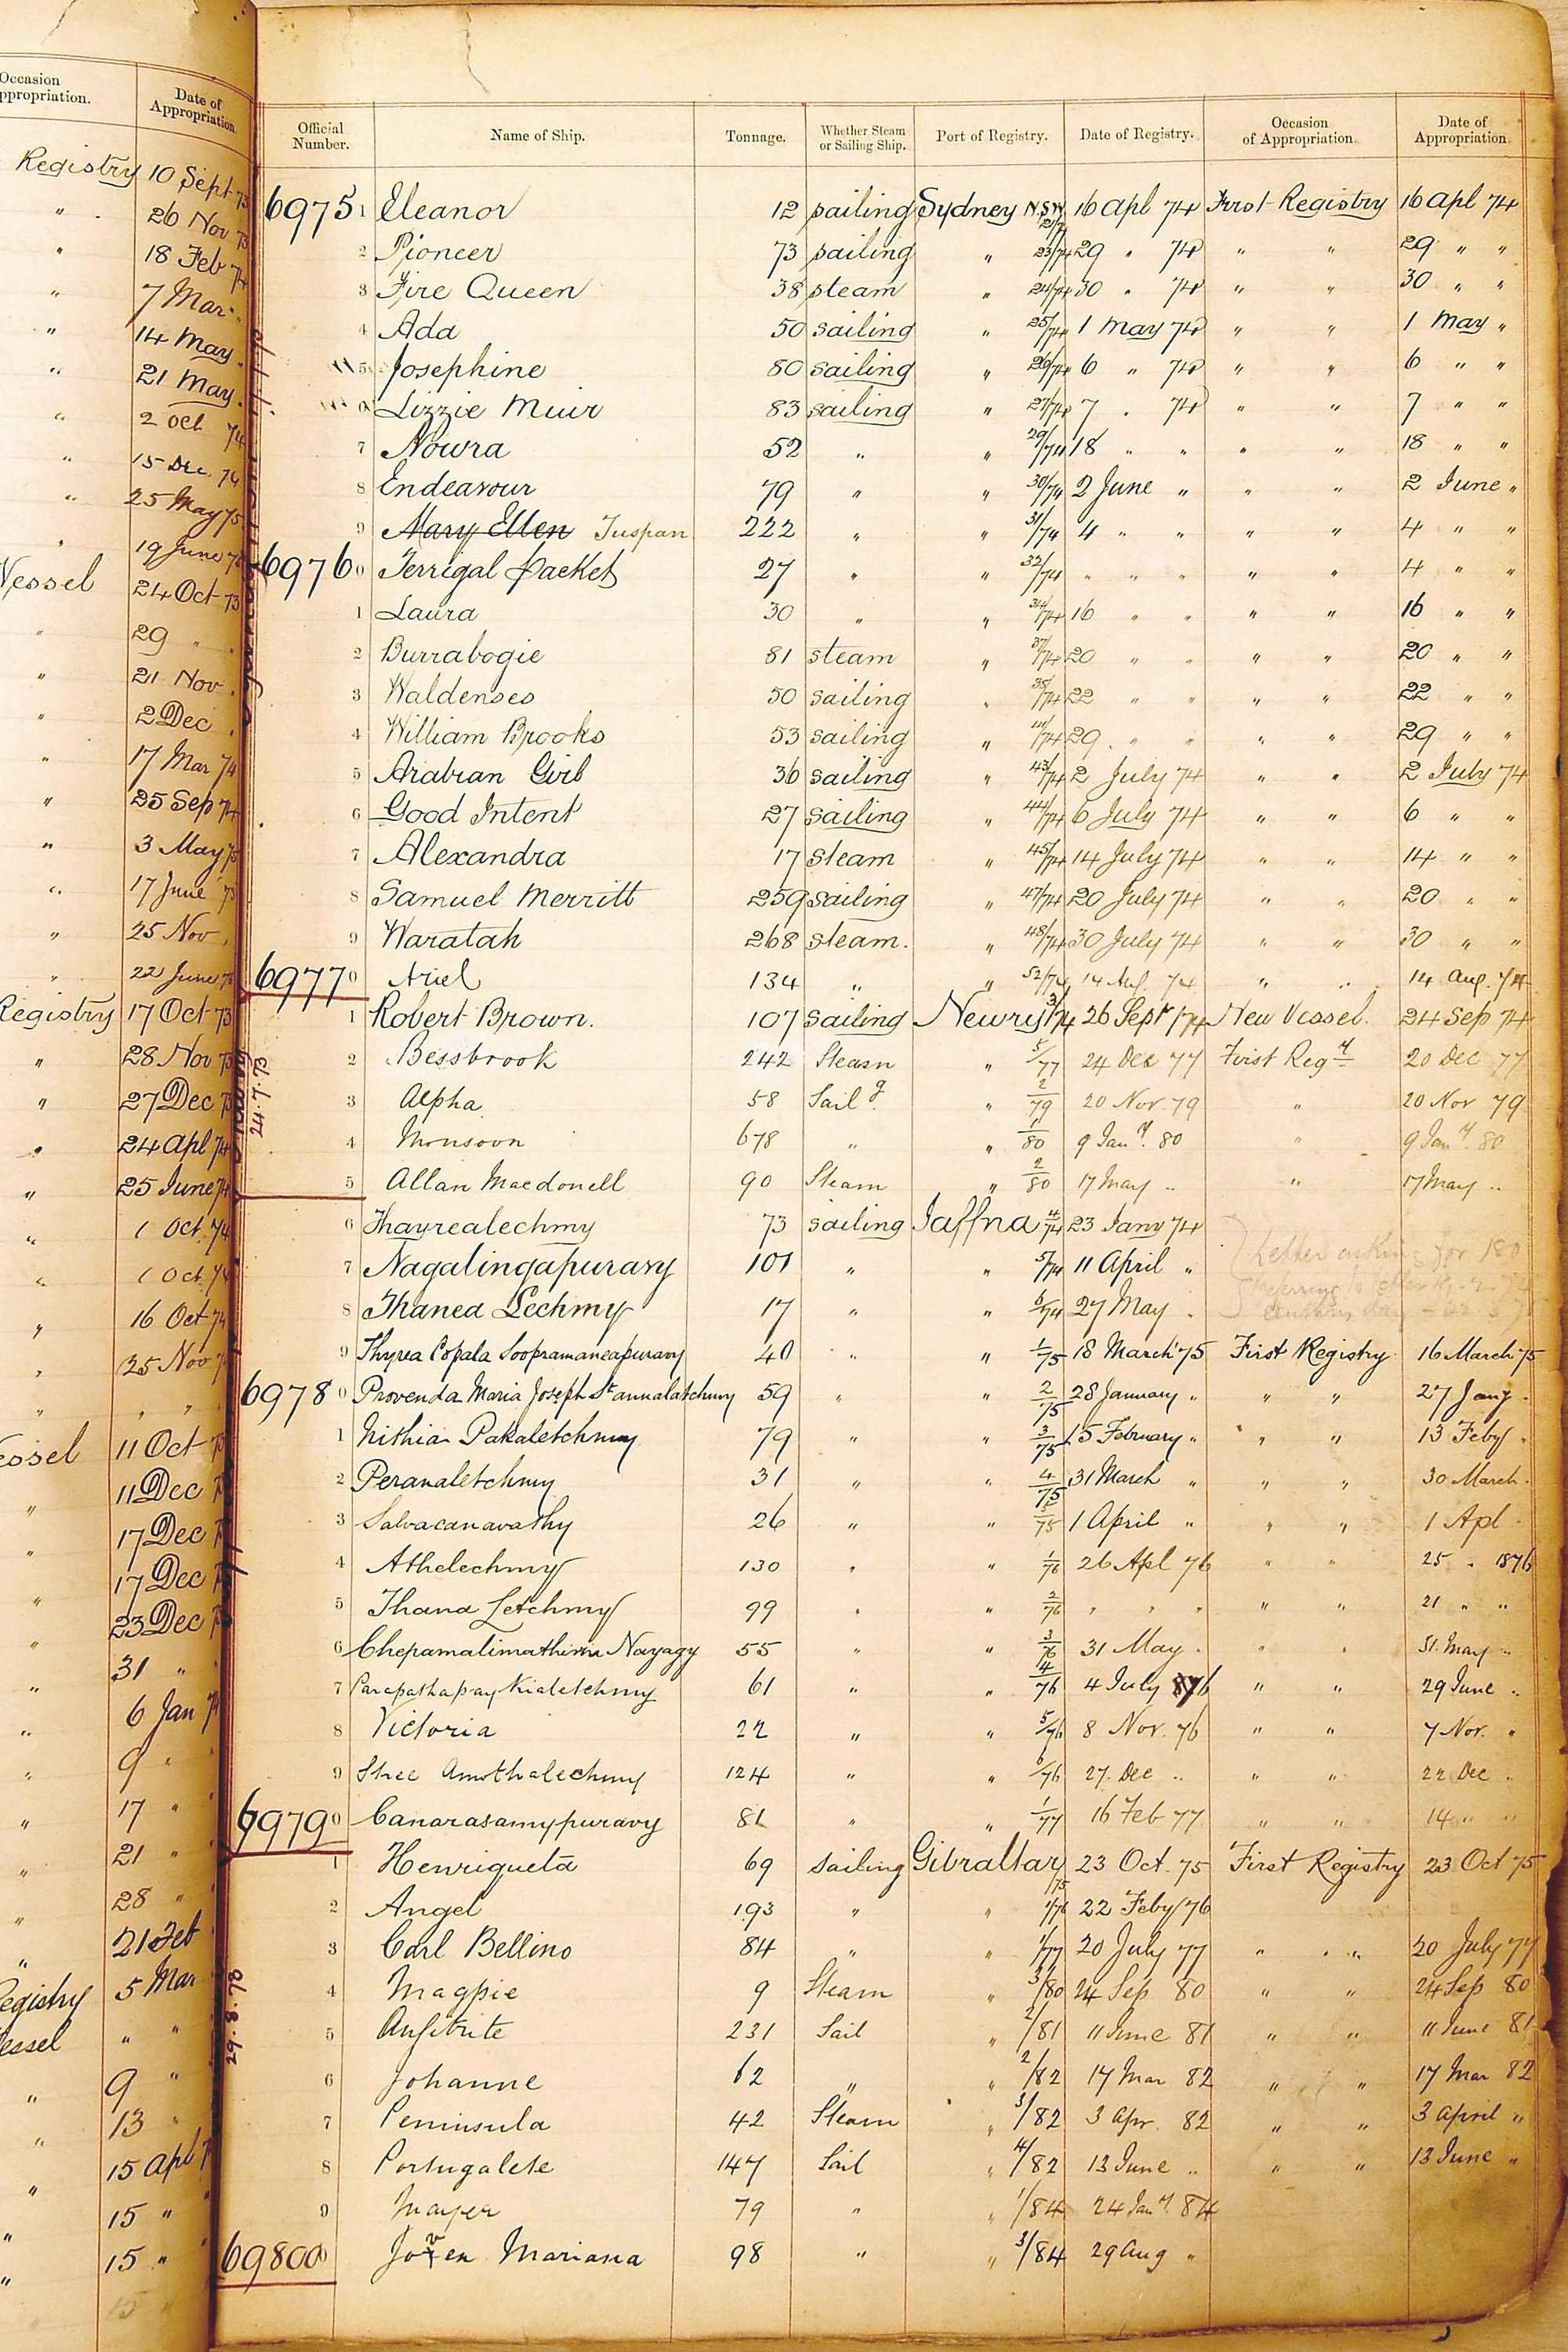 Occasion
ppropriation.
Date of
Appropriation
Registry 10 Sept 73
" 26 Nov 73
" 18 Feb 74
" 7 Mar "
" 14 May
" 21 May
" 2 Oct 74
" 15 Dec. 74
" 25 May 75
" 19 June
Vessel 24 Oct 73
" 29 "
" 21 Nov
" 2 Dec
" 17 Mar 74
" 25 Sep 74
" 3 May 75
" 17 June 75
" 25 Nov
" 22 June
Registry 17 Oct 73
" 28 Nov 73
" 27 Dec
" 24 Apl 74
" 25 June 74
" 1 Oct 74
" 1 Oct 74
" 16 Oct 74
" 25 Nov
" " "
essel 11 Oct
" 11 Dec
" 17 Dec
" 17 Dec
" 23 Dec
" 31 "
" 6 Jan
" 9 "
" 17 "
" 21 "
" 28 "
" 21 Feb
Registry 5 Mar
essel " "
" 9 "
" 13 "
" 15 Apl
" 15 "
" 15 "
24.7.73
29.8.73
Official Number. Name of Ship. Tonnage. Whether Steam or Sailing Ship. Port of Registry. Date of Registry. Occasion of Appropriation. Date of Appropriation.
69751 Eleanor 12 sailing Sydney N.S.W. 16 Apl 74 First Registry 16 Apl 74
2 Pioneer 73 sailing " 23/74 29 " 74 " " 29 " "
3 Fire Queen 38 steam " 24/74 30 " 74 " " 30 " "
4 Ada 50 sailing " 25/74 1 May 74 " " 1 May "
5 Josephine 80 sailing " 26/74 6 " 74 " " 6 " "
6 Lizzie Muir 83 sailing " 27/74 7 " 74 " " 7 " "
7 Nowra 52 " " 29/74 18 " " " " 18 " "
8 Endeavour 79 " " 30/74 2 June " " " 2 June "
9 Mary Ellen Tuspan 222 " " 31/74 4 " " " " 4 " "
69760 Terrigal Packet 27 " " 32/74 " " " " " 4 " "
1 Laura 30 " " 34/74 16 " " " " 16 " "
2 Burrabogie 81 steam " 37/74 20 " " " " 20 " "
3 Waldenses 50 sailing " 35/74 22 " " " " 22 " "
4 William Brooks 53 sailing " 41/74 29 " " " " 29 " "
5 Arabian Girl 36 sailing " 43/74 2 July 74 " " 2 July 74
6 Good Intent 27 sailing " 44/74 6 July 74 " " 6 " "
7 Alexandra 17 steam " 45/74 14 July 74 " " 14 " "
8 Samuel Merritt 259 sailing " 47/74 20 July 74 " " 20 " "
9 Waratah 268 steam. " 48/74 30 July 74 " " 30 " "
69770 Ariel 134 " " 52/74 14 Aug. 74 " " 14 Aug. 74
1 Robert Brown. 107 sailing Newry 3/74 26 Sept 74 New Vessel. 24 Sep 74
2 Bessbrook 242 Steam " 5/77 24 Dec 77 First Regy 20 Dec 77
3 Alpha 58 Sailg. " 2/79 20 Nov. 79 " 20 Nov 79
4 Monsoon 678 " " 1/80 9 Jany. 80 " 9 Jany. 80
5 Allan Macdonell 90 Steam " 2/80 17 May " " 17 May "
6 Thayrealechmy 73 sailing Jaffna 4/74 23 Jany 74
7 Nagalingapuravy 101 " " 5/74 11 April "
Letter asking for 180
8 Thanea Lechmy 17 " " 6/74 27 May "
9 Thyrea Copala Soopramaneapuravy 40 " " 1/75 18 March 75 First Registry 16 March 75
69780 Provenda Maria Joseph St annalatchmy 59 " " 2/75 28 January " " " 27 Jany "
1 Nithia Pakaletchmy 79 " " 3/75 15 February " " " 13 Feby "
2 Peranaletchmy 31 " " 4/75 31 March " " " 30 March "
3 Salvacanavathy 26 " " 5/75 1 April " " " 1 Apl "
4 Athelechmy 130 " " 1/76 26 Apl 76 " " 25 " 1876
5 Thana Letchmy 99 " " 2/76 " " " " " 21 " "
6 Chepamalimathina Nayagy 55 " " 3/76 31 May " " " 31 May "
7 Parapathapay Nialetchmy 61 " " 4/76 4 July 76 " " 29 June "
8 Victoria 22 " " 5/76 8 Nov. 76 " " 7 Nov. "
9 Stree Amothalechmy 124 " " 6/76 27 Dec " " " 22 Dec "
69790 Canarasamypuravy 81 " " 1/77 16 Feb 77 " " 14 " "
1 Henriqueta 69 sailing Gibraltar /75 23 Oct 75 First Registry 23 Oct 75
2 Angel 193 " " 1/76 22 Feby 76
3 Carl Bellino 84 " " 1/77 20 July 77 " " 20 July 77
4 Magpie 9 Steam " 3/80 24 Sep 80 " " 24 Sep 80
5 Anfitrite 231 Sail " 2/81 11 June 81 " " 11 June 81
6 Johanne 62 " " 2/82 17 Mar 82 " " 17 Mar 82
7 Peninsula 42 Steam " 3/82 3 Apr. 82 " " 3 April "
8 Portugalete 147 Sail " 4/82 13 June " " " 13 June "
9 Mayer 79 " " 1/84 24 Jany. 84
69800 Joven Mariana 98 " " 3/84 29 Aug "